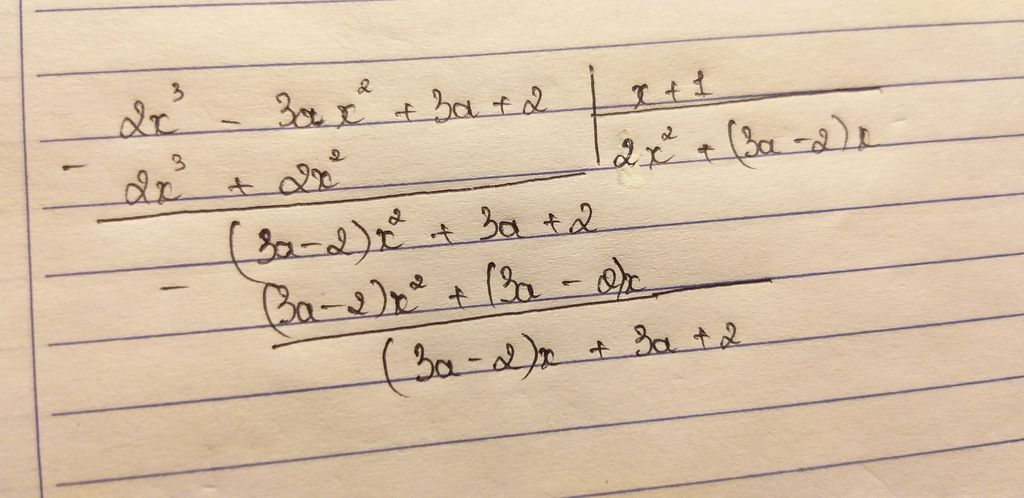 2x³ - 3ax² + 3a + 2 | x + 1
- 2x³ + 2x² | 2x² + (3a - 2)x
(3a - 2)x² + 3a + 2
- (3a - 2)x² + (3a - 2)x
(3a - 2)x + 3a + 2